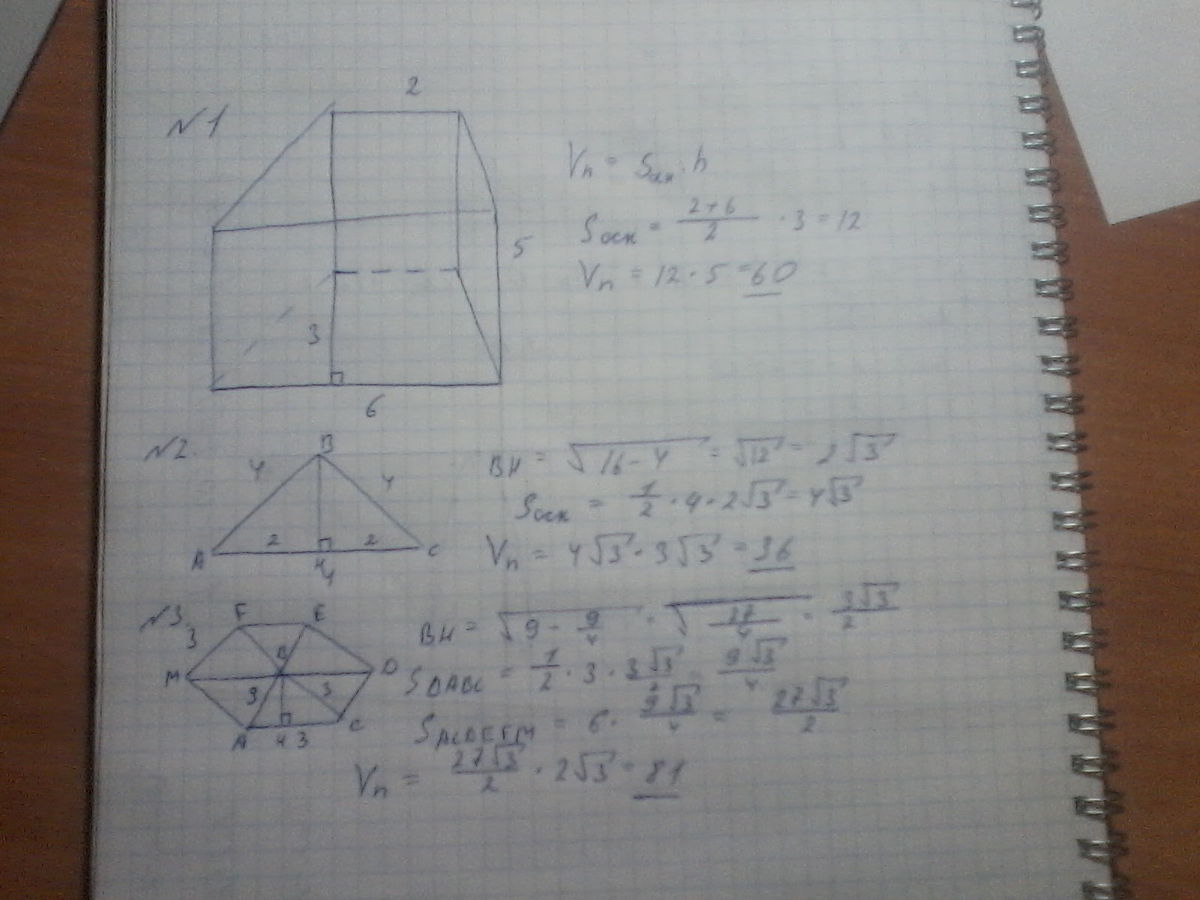 №1
2
5
3
6
Vп = Sосн · h
Sосн = (2+6)/2 · 3 = 12
Vп = 12 · 5 = 60
№2
B
4 4
A 2 2 C
H
4
BH = √(16-4) = √12 = 2√3
Sосн = 1/2 · 4 · 2√3 = 4√3
Vп = 4√3 · 3√3 = 36
№3
F E
3
M B D
3 3
A H 3 C
BH = √(9 - 9/4) = √(27/4) = 3√3/2
SΔABC = 1/2 · 3 · 3√3/2 = 9√3/4
SACDEFM = 6 · 9√3/4 = 27√3/2
Vп = 27√3/2 · 2√3 = 81